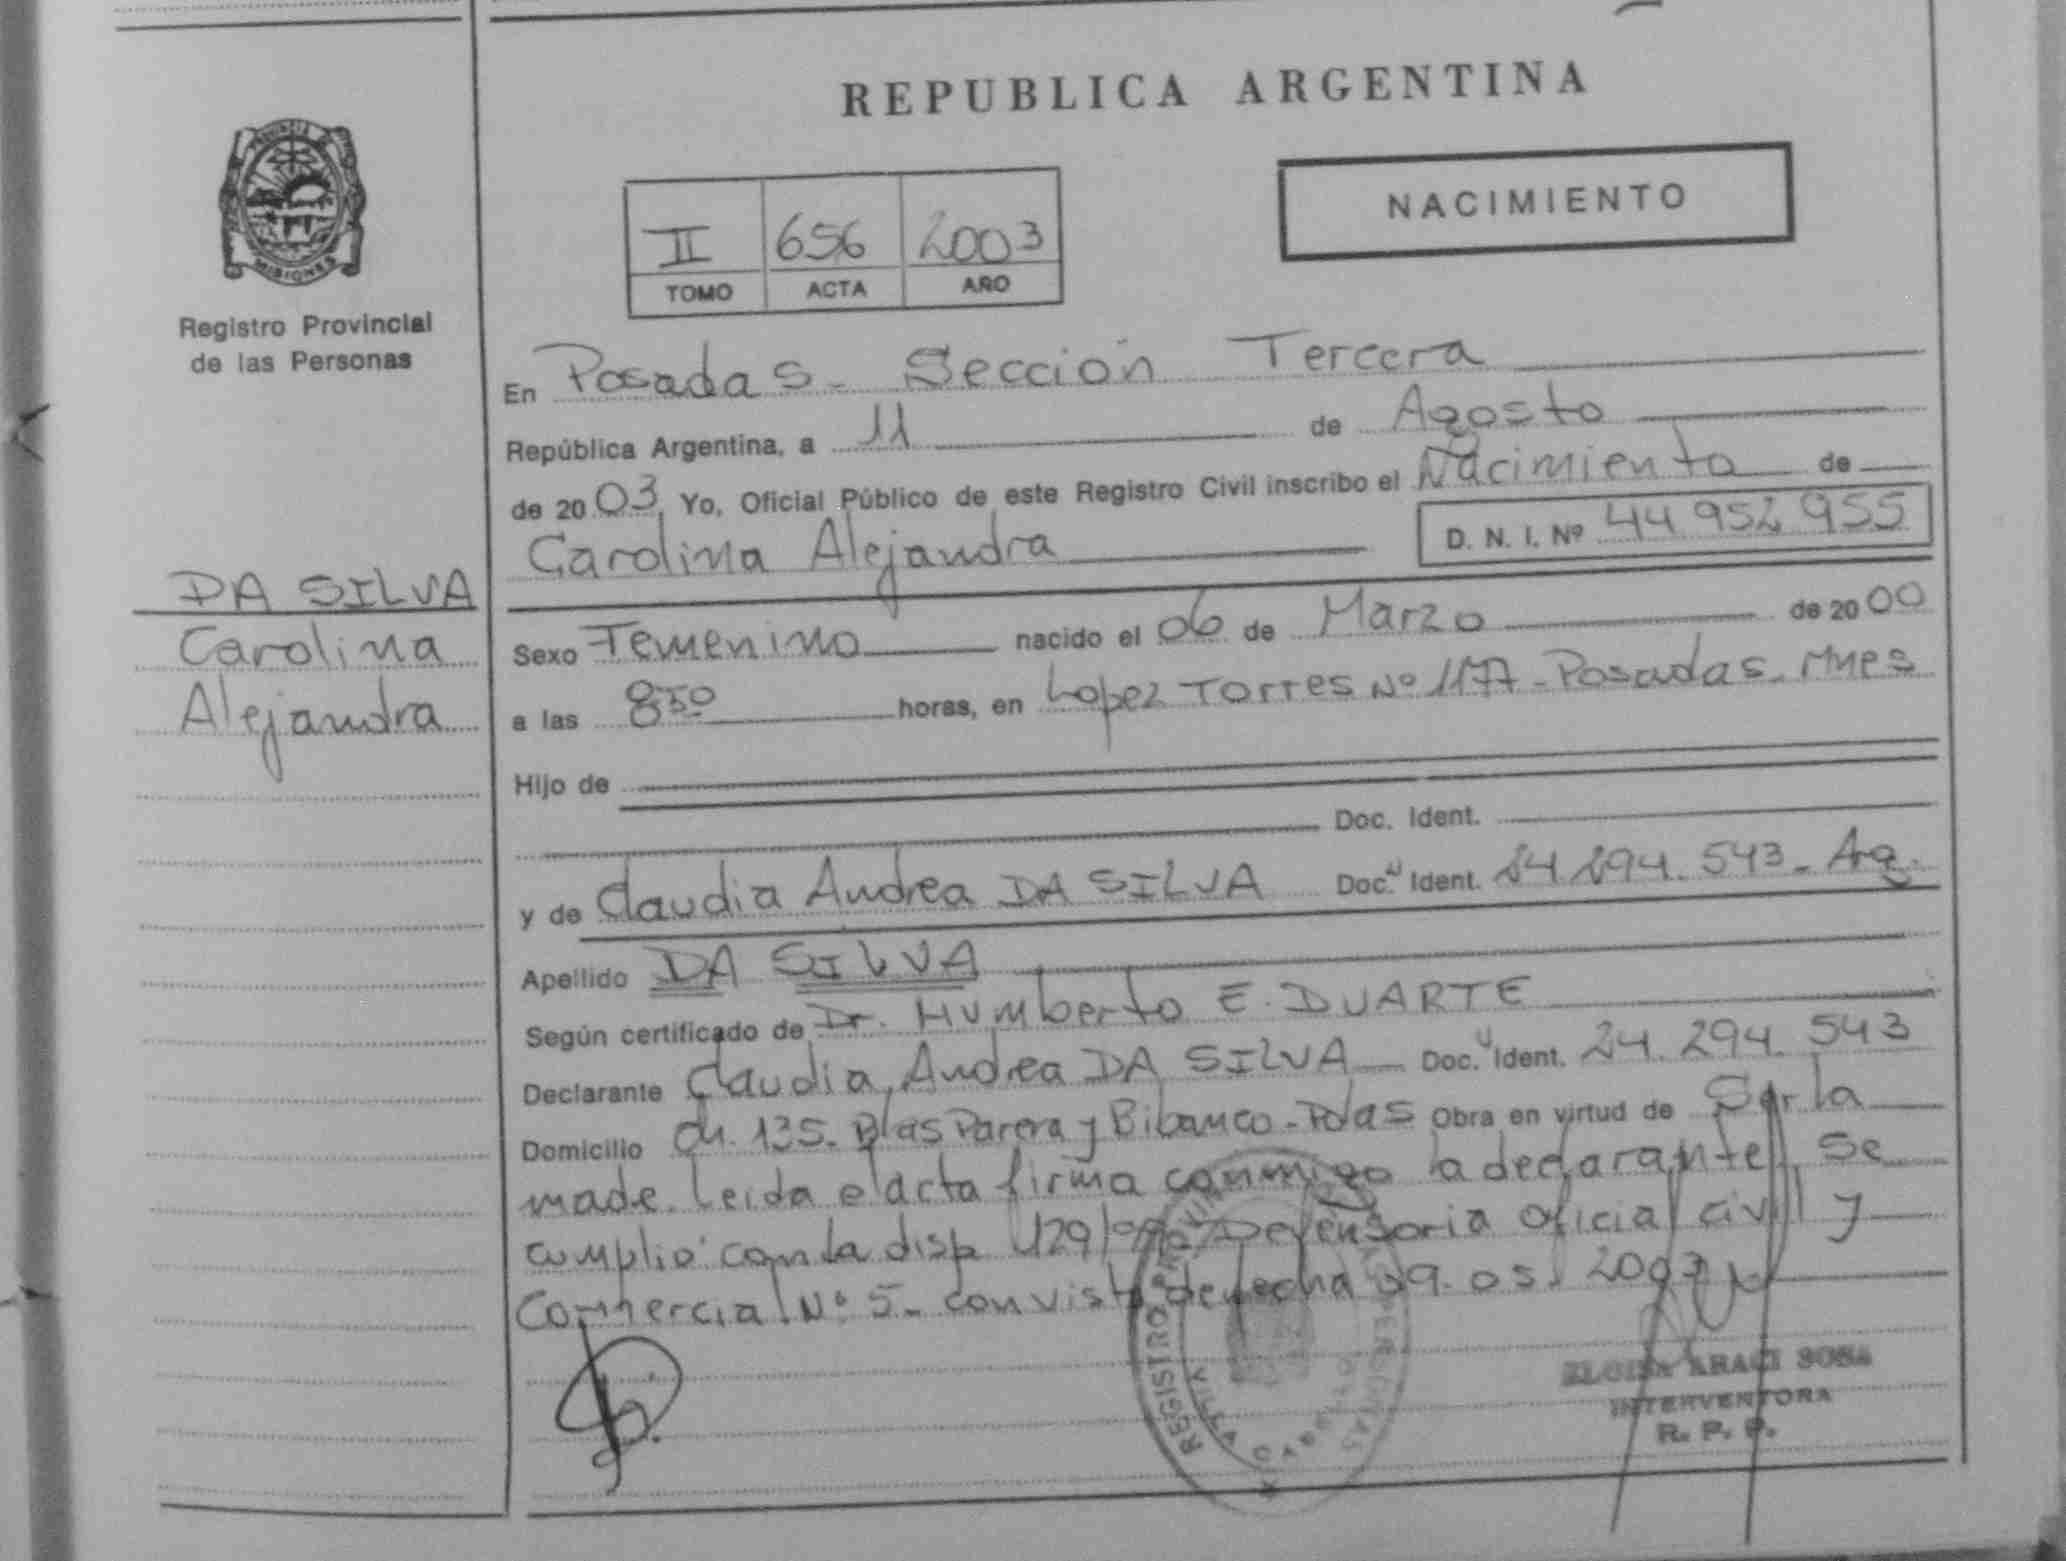 REPUBLICA ARGENTINA
NACIMIENTO
II 656 2003
TOMO ACTA AÑO
PROVINCIA DE
MISIONES
Registro Provincial
de las Personas
DA SILVA
Carolina
Alejandra
En Posadas - Sección Tercera
República Argentina, a 11 de Agosto
de 2003 Yo, Oficial Público de este Registro Civil inscribo el Nacimiento de
Carolina Alejandra D. N. I. Nº 44 952 955
Sexo Femenino nacido el 06 de Marzo de 2000
a las 8:50 horas, en Lopez Torres Nº 1177 - Posadas - Mnes
Hijo de
Doc. Ident.
y de Claudia Andrea DA SILVA Doc. Ident. 24.294.543 - Arg.
Apellido DA SILVA
Según certificado de Dr. Humberto E. DUARTE
Declarante Claudia Andrea DA SILVA Doc. Ident. 24.294.543
Domicilio Ch. 135 - Blas Parera y Bibanco - Pdas Obra en virtud de Ser la
made. Leida el acta firma conmigo la declarante, Se
cumplió con la disp Defensoria oficial civil y
Comercial Nº 5 - con vista de fecha 09. 05. 2003
REGISTRO PROVINCIAL PERSONAS
ELOISA ARACI SOSA
INTERVENTORA
R. P. P.